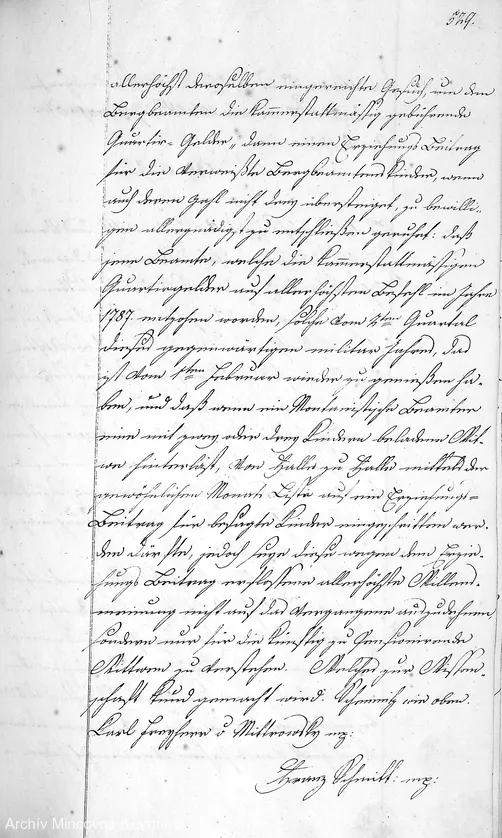 529.
allerhöchst deroselben eingereichte Gesuch, um den
Bergbeamten die kammerstattmässig gebührende
Quartir-Gelder, dann einen Erziehungs Beitrag
für die Verweißte Bergbeamtenskinder, wenn
auch deren Zahl nicht drey übersteiget, zu bewilli-
gen allergnädigst zu entschließen geruhet: daß
jene Beamte, welche die kammerstattmässigen
Quartirgelder auf allerhöchsten Befehl im Jahre
1787. entzohen worden, solche vom 2ten Quartal
dieses gegenwärtigen militar Jahres, das
ist vom 1ten Februar wieder zu genießen ha-
ben, und daß wenn ein Montanistischer Beamter
eine mit zwey oder drey Kindern beladene Wit-
we hinterläst, von Falle zu Falle mittels der
gewöhnlichen Monats Liste auf ein Erziehungs-
Beitrag für besagte Kinder eingeschritten wer-
den därfte, jedoch seye diese wegen dem Erzie-
hungs Beitrag erflossene allerhöchste Willens-
meinung nicht auf das Vergangene auszudehnen
sondern nur für die künftig zu Pensionirende
Wittwen zu verstehen. Welches zur Wissen-
schaft kund gemacht wird. Schemnitz wie oben.
Karl Freyherr v Mittrowsky mp:
Franz Schmitt: mp:
Archív Mincovne